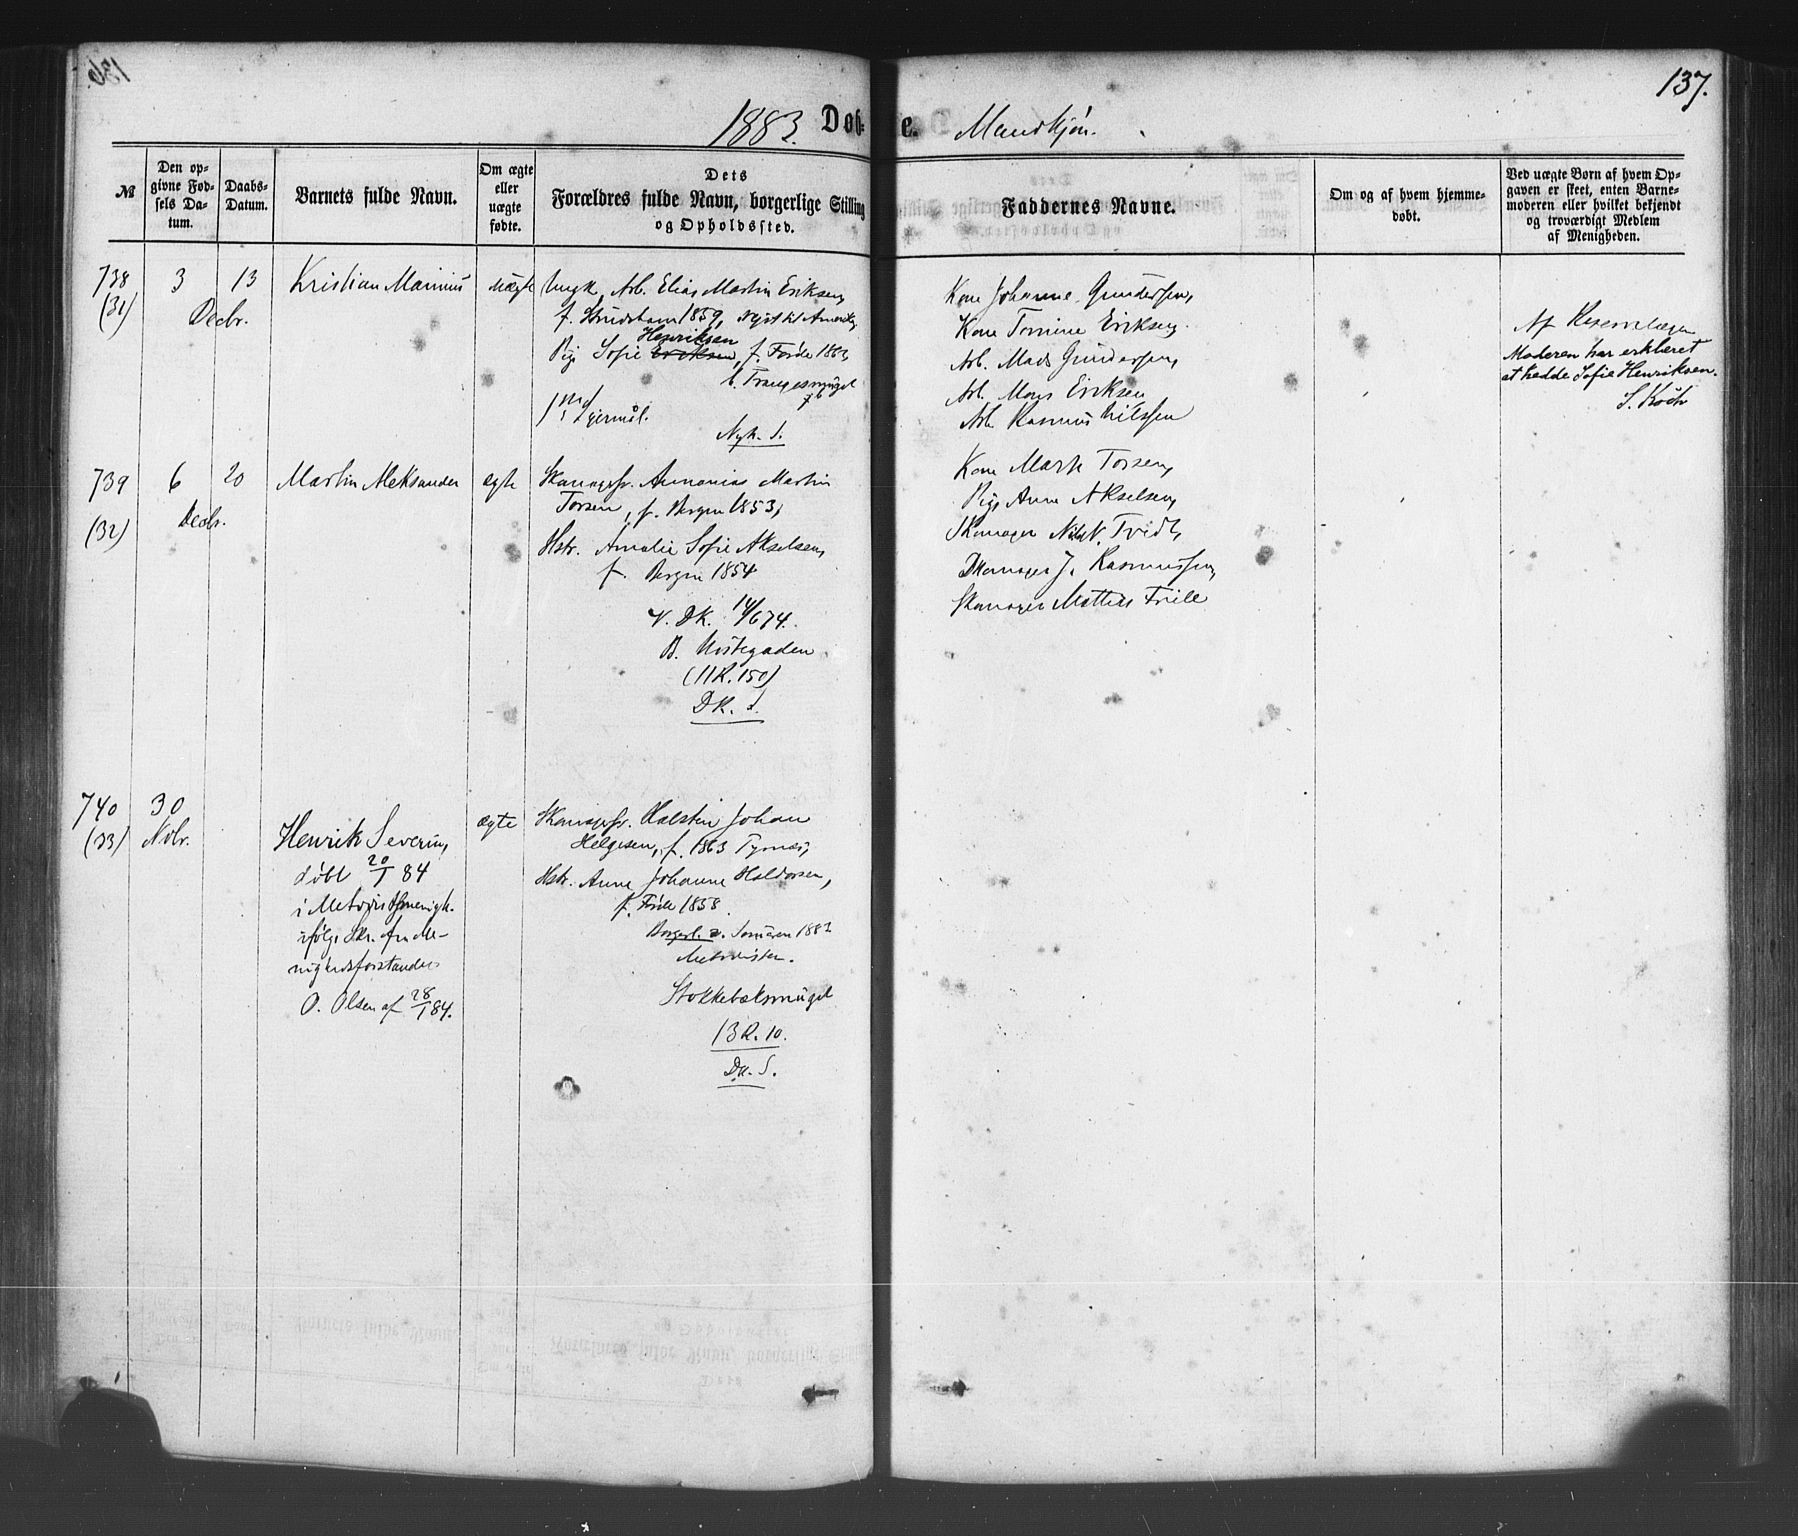 137.
1883. Døb- te. Mandkjøn.
№
Den op-
givne Fød-
sels Da-
tum.
Daabs-
Datum.
Barnets fulde Navn.
Om ægte
eller
uægte
fødte.
Dets
Forældres fulde Navn, borgerlige Stilling
og Opholdssted.
Faddernes Navne.
Om og af hvem hjemme-
døbt.
Ved uægte Børn af hvem Op-
gaven er skeet, enten Barne-
moderen eller hvilket bekjendt
og troværdigt Medlem
af Menigheden.
738
(31)
3
Decbr.
13
Kristian Marinius
uægte
Ungk. Arb. Elias Martin Eriksen,
f. 1859, rejst til Amerika,
Henriksen
Pige Sofie Eriksen, f. Førde 1863
b. Trangesmuget
76
1ste Lejermål.
Nyk. S.
Kone Johanne Gundersen,
Kone Tomine Eriksen.
Arb. Mads Gundersen,
Arb. Mons Eriksen
Arb. Rasmus Nilssen
Af
Moderen har erklæret
at hedde Sofie Henriksen.
S. Koch
739
(32)
6
Decbr.
20
Martin Aleksander
ægte
Skomagersv. Annanias Martin
Torsen, f. Bergen 1853,
Hstr. Amalie Sofie Akselsen,
f. Bergen 1854
V. DK. 14/6 74.
B. Nøstegaden
(11R. 150)
DK. S.
Kone Mark Torsen,
Pige Anne Akselsen,
Skomager Nils N. Tvidt,
Skomager J. Rasmussen,
Skomager Mattias Friele
740
(33)
30
Nvbr.
Henrik Severin,
døbt 20/1 84
i Metodistmenigh.
ifølge Skr. fra Me-
nighedsforstander
O. Olsen af 28/1 84.
ægte
Skomagersv. Halstin Johan
Helgesen, f. 1863
Hstr. Anne Johanne Haldorsen,
f. Førde 1858.
Borgerl. v. 1883
Metodister.
Stokkebæksmuget
13R. 10.
DK. S.